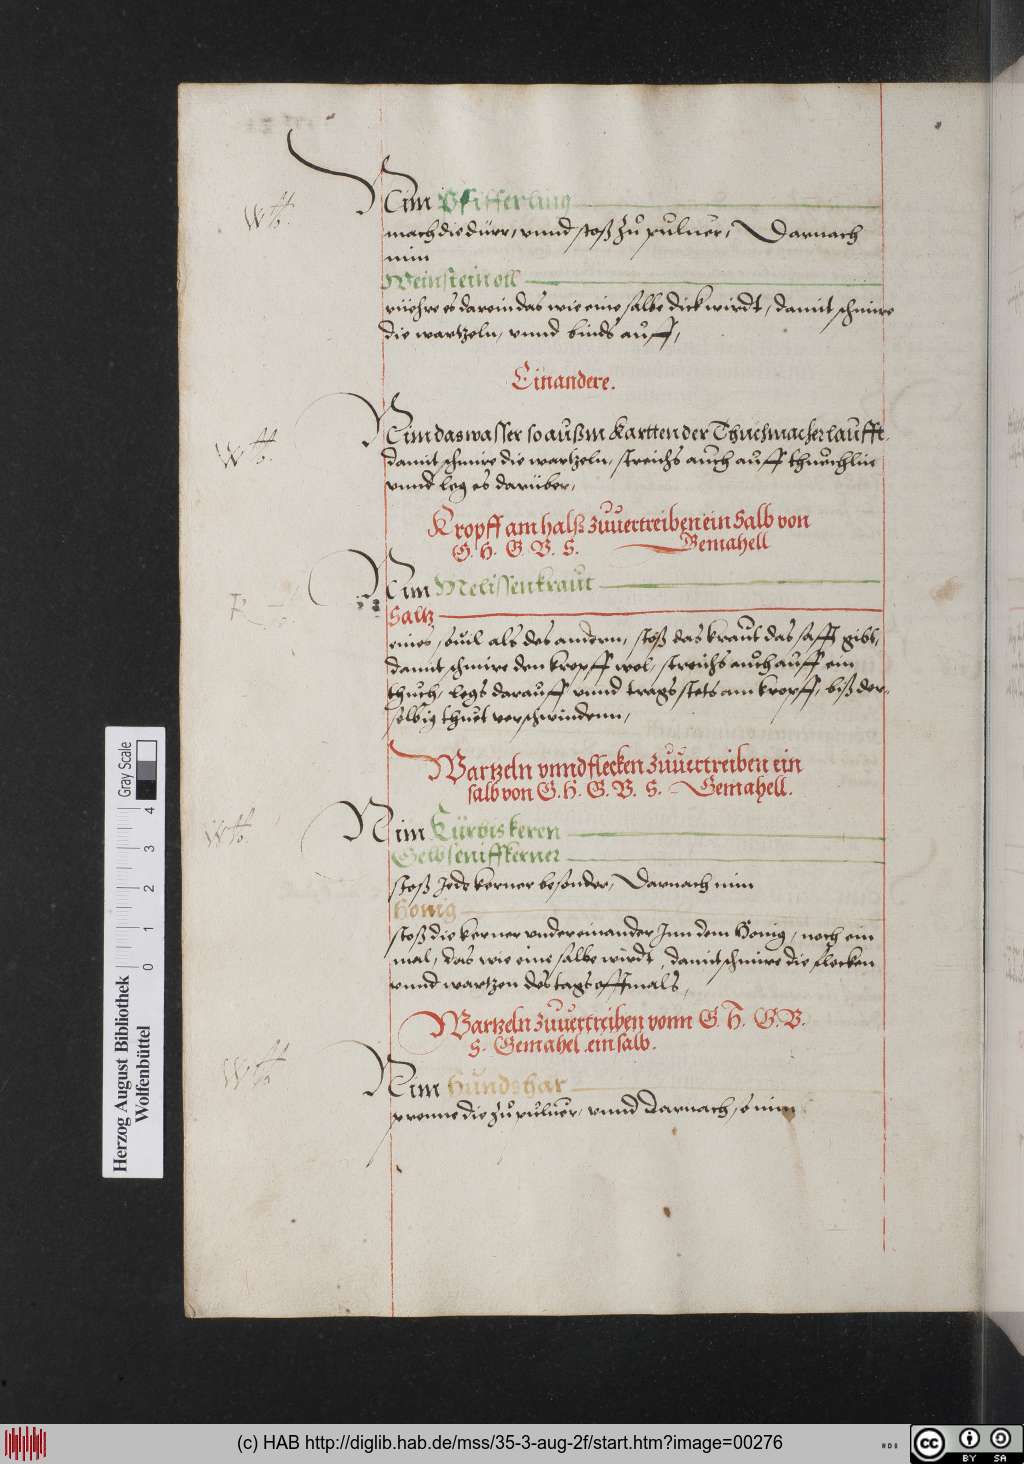 Nim Pfifferling
mach die dürr, vnnd stoß zů puluer, Darnach
nim
Weinstein oll
rüehre es darein das wie eine salbe dick wirdt, damit schmire
die wartzeln, vnnd binds auff,
Ein andere.
Nim das wasser so außm Kartten der Thuchmacher laufft.
damit schmire die wartzeln, streichs auch auff
vnnd leg es darüber,
Kropff am halß zuuertreiben ein Salb von
G. H. G. V. S. Gemahell
Nim Melissenkraut
Saltz
eines souil als des andern, stoß das kraut das safft gibt,
damit schmire den kropff wol, streichs auch auff ein
thuch, legs darauff vnnd trags stets am kropff, biß der-
selbig thuet verschwindenn,
Wartzeln vnnd flecken zuuertreiben ein
salb von G. H. G. V. S. Gemahell.
Nim Kürbiskeren
Gelbseniffkerner
stoß Jede kerner besonder, Darnach nim
Honig
stoß die kerner vndereinander Jnn dem Honig, noch ein
mal, das wie eine salbe wirdt, damit schmire die flecken
vnnd wartzen des tags offtmals,
Wartzeln zuuertreiben vonn G. H. G. V.
S. Gemahel ein salb.
Nim Hundshar
prenne die zů puluer, vnnd Darnach, so nim
Herzog August Bibliothek
Wolfenbüttel
0 1 2 3 4
Gray Scale
(c) HAB http://diglib.hab.de/mss/35-3-aug-2f/start.htm?image=00276
cc BY SA